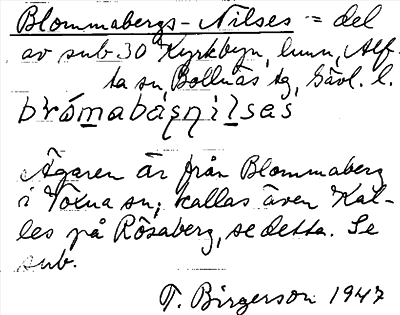 Blommabergs-Nilses = del
av sub 30 Kyrkbyn, hmn, Alf-
ta sn, Bollnäs tg, Gävl. l.
brómabásnilsas
Ägaren är från Blommaberg
i Voxna sn; kallas även Kal-
les på Rösaberg, se detta. Se
sub.
T. Birgerson 1947